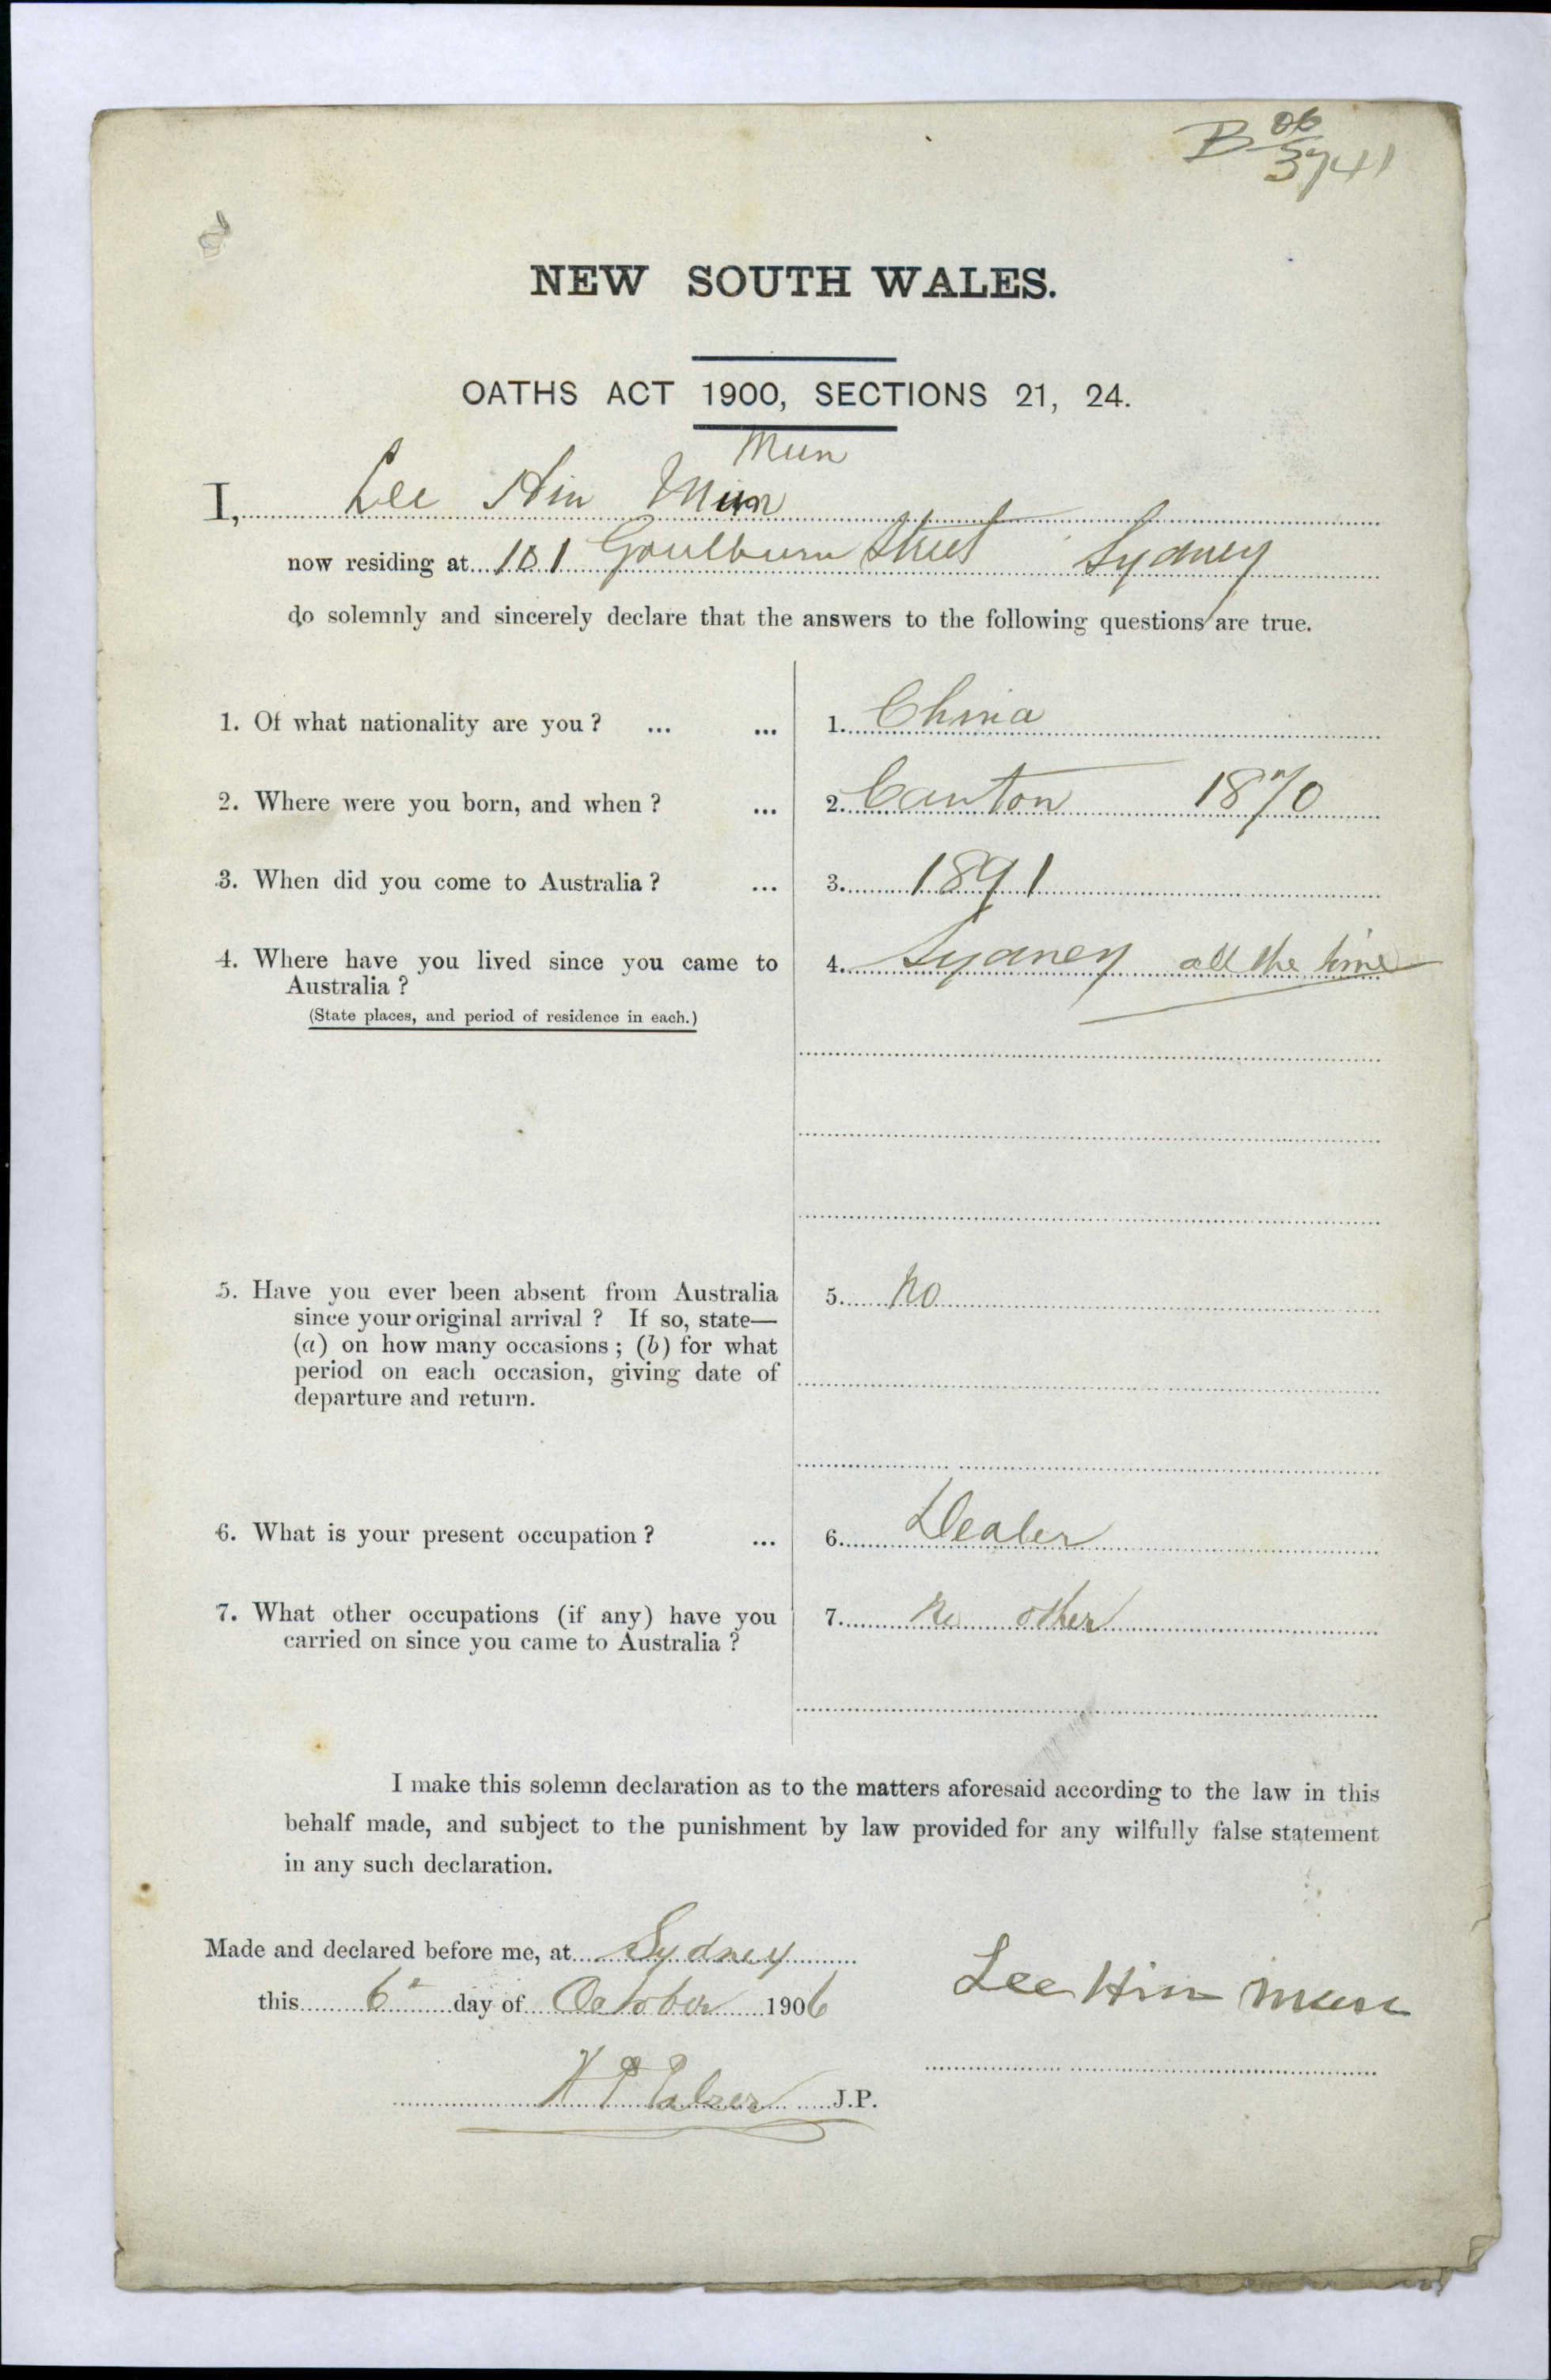 B 06/5741
NEW SOUTH WALES.
OATHS ACT 1900, SECTIONS 21, 24.
Mun
I, Lee Hin Mun
now residing at 181 Goulburn Street Sydney
do solemnly and sincerely declare that the answers to the following questions are true.
1. Of what nationality are you ? ... ... 1. China
2. Where were you born, and when ? ... 2. Canton 1870
3. When did you come to Australia ? ... 3. 1891
4. Where have you lived since you came to 4. Sydney all the time
Australia ?
(State places, and period of residence in each.)
5. Have you ever been absent from Australia 5. No
since your original arrival ? If so, state—
(a) on how many occasions ; (b) for what
period on each occasion, giving date of
departure and return.
6. What is your present occupation ? ... 6. Dealer
7. What other occupations (if any) have you 7. No other
carried on since you came to Australia ?
I make this solemn declaration as to the matters aforesaid according to the law in this
behalf made, and subject to the punishment by law provided for any wilfully false statement
in any such declaration.
Made and declared before me, at Sydney
Lee Hin Mun
this 6th day of October 1906
J.P.